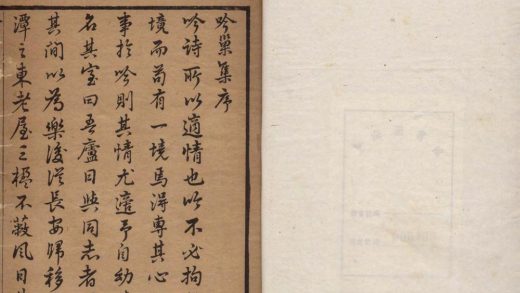 吟巢集序
吟诗所以適情也似不必拘
境而苟有一境焉得專其心
事於吟則其情尤適予自幼
名其室曰吾廬日與同志者
其间以為樂後從長安歸移
潭之東老屋三楹不蔽風日